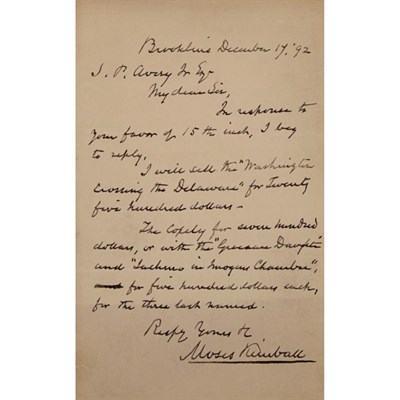 Brookline December 17, '92
S. P. Avery Jr Esq
My dear Sir,
In response to
your favor of 15th inst, I beg
to reply.
I will sell the "Washington
Crossing the Delaware" for Twenty
five hundred dollars –
The Copely for seven hundred
dollars, or with the "Grecian Daughter"
and "Iachimo in Imogens Chamber",
for five hundred dollars each,
for the three last named.
Respy Yours &c
Moses Kimball